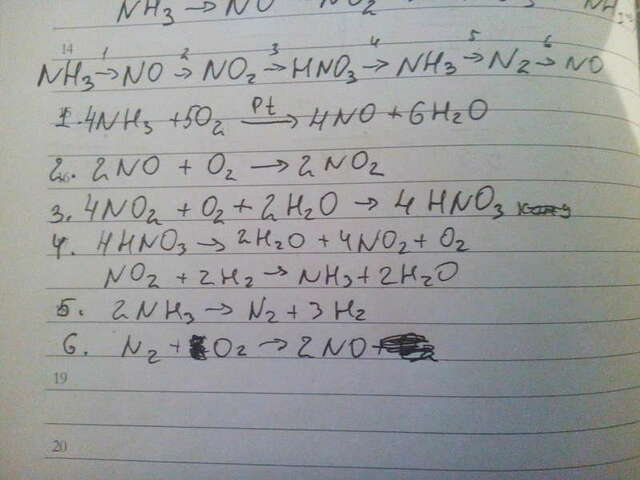 NH3 → NO NO2 NH
14
1 2 3 4 5 6
NH3 → NO → NO2 → HNO3 → NH3 → N2 → NO
1. 4NH3 + 5O2 Pt → 4NO + 6H2O
2. 2NO + O2 → 2NO2
3. 4NO2 + O2 + 2H2O → 4HNO3
4. 4HNO3 → 2H2O + 4NO2 + O2
NO2 + 2H2 → NH3 + 2H2O
5. 2NH3 → N2 + 3H2
6. N2 + O2 → 2NO
19
20